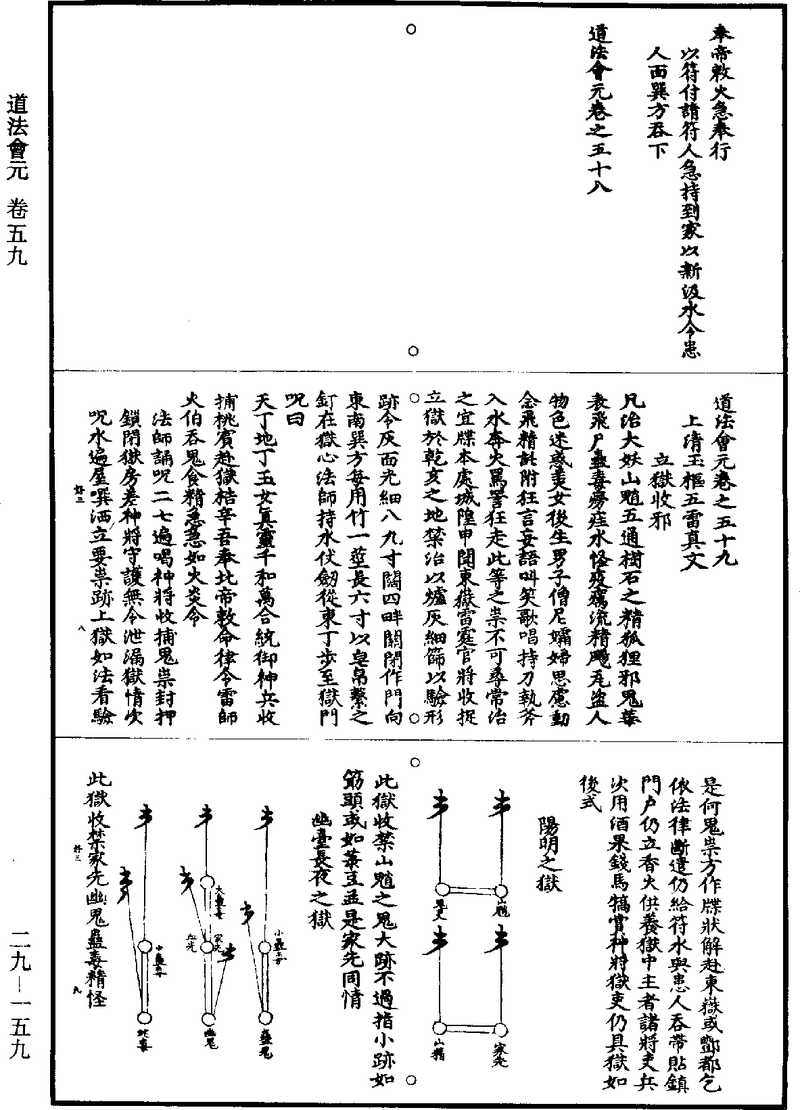 道法會元 卷五九
二九—一五九
奉帝敕火急奉行
以符付請符人急持到家以新汲水令患
人面巽方吞下
道法會元卷之五十八
道法會元卷之五十九
上清玉樞五雷真文
立獄收邪
凡治大妖山魈五通樹石之精狐狸邪鬼蓦
表飛尸蠱毒癆瘵水怪疫癘流精颺瓦盜人
物色迷惑美女後生男子僧尼孀婦思慮動
念飛精託附狂言妄語叫笑歌唱持刀執斧
入水奔火罵詈狂走此等之祟不可尋常治
之宜牒本處城隍申聞東嶽雷霆官將收捉
立獄於乾亥之地禁治以爐灰細篩以驗形
跡令灰面光細八九寸闊四畔關閉作門向
東南巽方每用竹一莖長六寸以皂帛繫之
釘在獄心法師持水伏劒從東丁步至獄門
呪曰
天丁地丁玉女真靈千和萬合統御神兵收
捕桃賓赴獄楛辛吾奉北帝敕命律令雷師
火伯吞鬼食精急急如火炎令
法師誦呪二七遍喝神將收捕鬼祟封押
鎖閉獄房差神將守護無令泄漏獄情次
呪水遍屋噀洒立要祟跡上獄如法看驗
舒三
八
是何鬼祟方作牒狀解赴東嶽或酆都乞
依法律斷遣仍給符水與患人吞帶貼鎮
門戶仍立香火供養獄中主者諸將吏兵
次用酒果錢馬犒賞神將獄吏仍具獄如
後式
陽明之獄
山魈
家先
山精
此獄收禁山魈之鬼大跡不過指小跡如
筯頭或如菉豆盂是家先同情
幽臺長夜之獄
小蠱毒
蠱鬼
大蠱毒
家先
幽鬼
中蠱毒
此獄收禁家先幽鬼蠱毒精怪
舒三
九